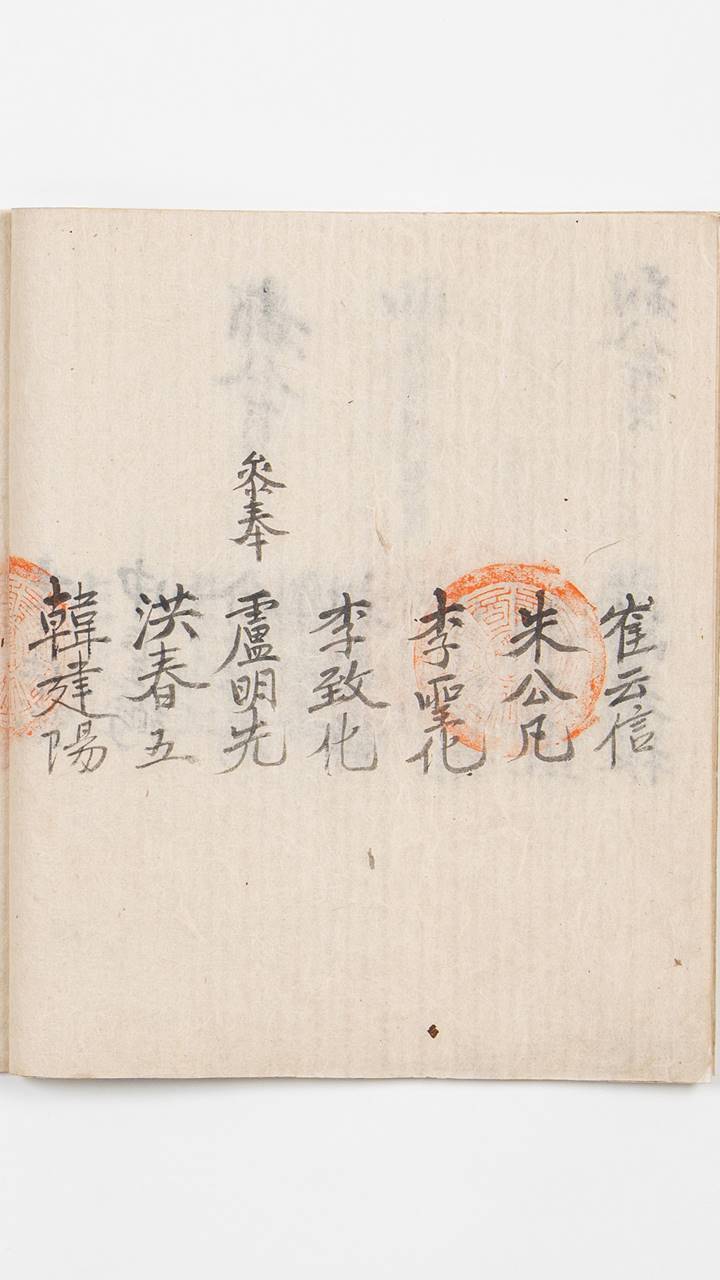 崔云信
朱公凡
李聖化
李致化
叅奉 盧明先
洪春五
韓建陽